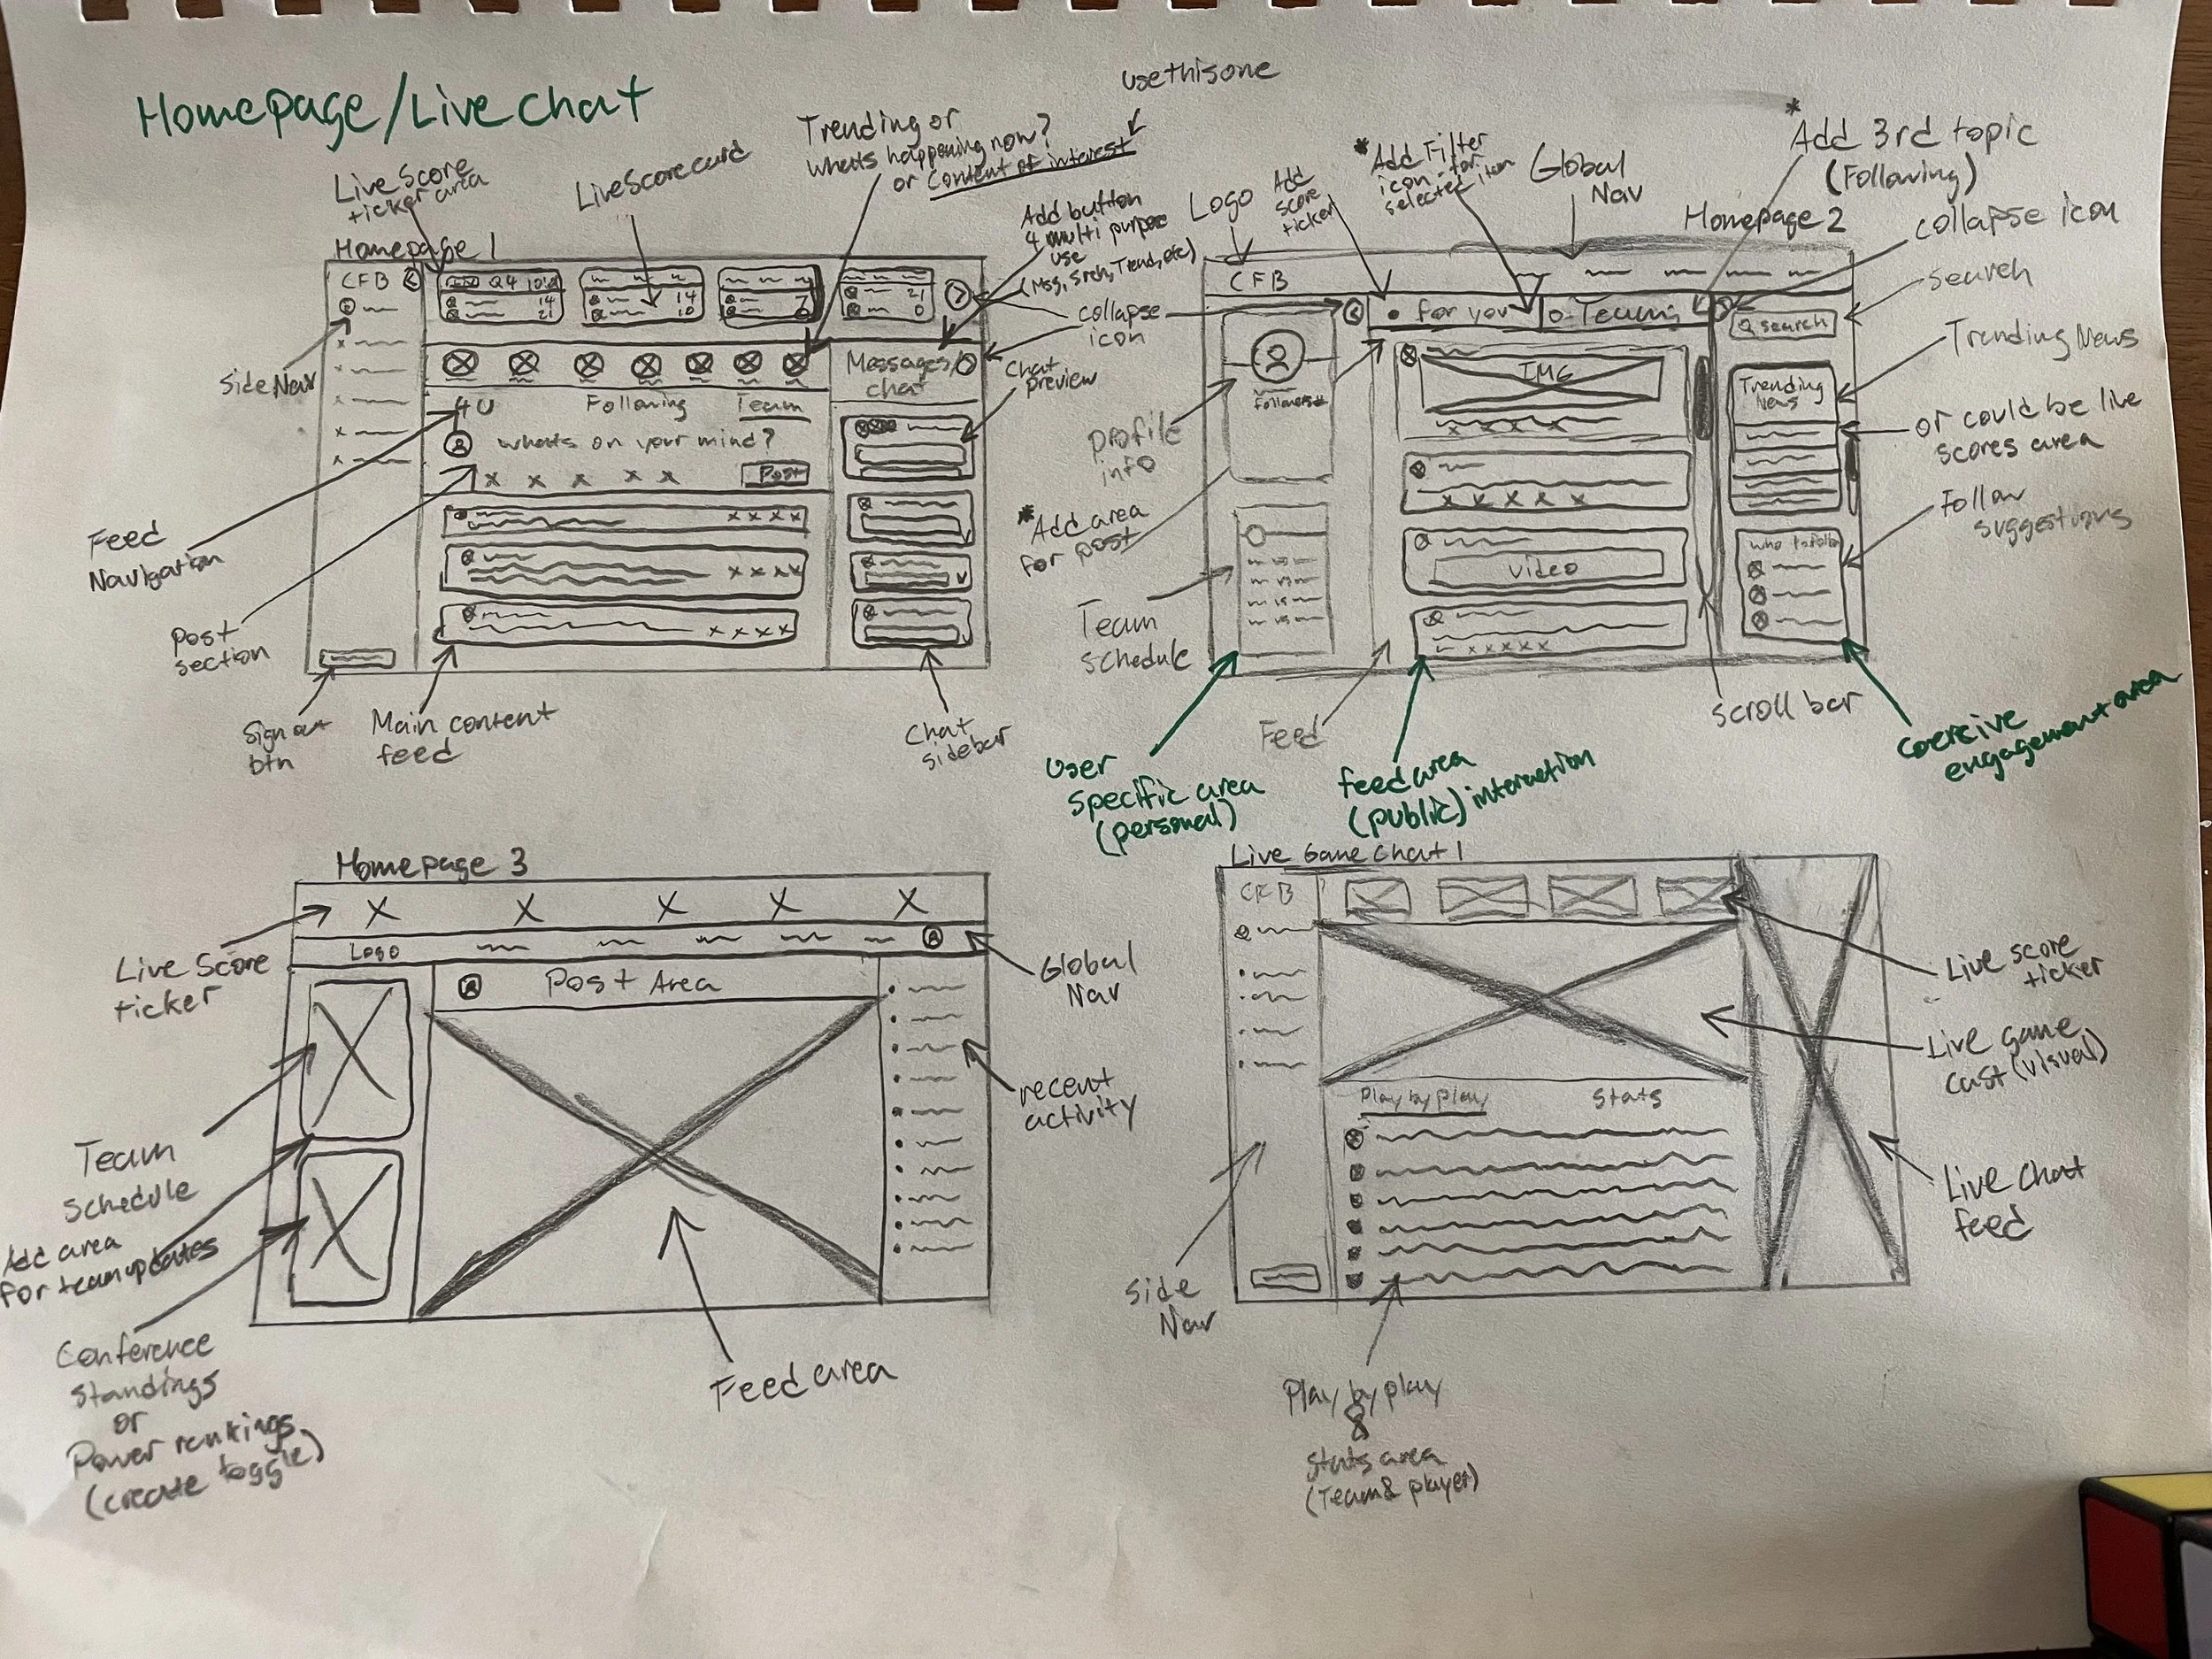 Homepage/Live chat
Live Score
ticker area
Live Scorecard
Trending or
whats happening now?
or Content of interest
use this one
Add button
4 multi purpose
use
(Msg, Srch, Trend, etc)
collapse
icon
Chat
preview
Homepage 1
CFB
Q4
14
21
14
10
7
21
0
Side Nav
Messages/
chat
4U
Following
Team
whats on your mind?
Post
Feed
Navigation
Post
section
Sign out
btn
Main content
feed
Chat
sidebar
Logo
Add
score
ticker
*Add Filter
icon for
selected item
Global
Nav
*Add 3rd topic
(Following)
Homepage 2
collapse icon
search
CFB
for you
Teams
search
IMG
Followers
Trending
News
Trending News
or could be live
scores area
profile
info
*Add area
for post
video
who to follow
Follow
suggestions
vs
vs
vs
vs
Team
schedule
Feed
scroll bar
User
specific area
(personal)
feed area
(public) interaction
Coercive
engagement area
Homepage 3
Logo
Post Area
Live Score
ticker
Global
Nav
recent
activity
Team
schedule
Add area
for team updates
Conference
standings
or
Power rankings
(create toggle)
Feed area
Live Game Chat 1
CFB
Play by play
Stats
Live score
ticker
Live game
cast (visual)
Live chat
feed
Side
Nav
Play by play
&
stats area
(Team & player)